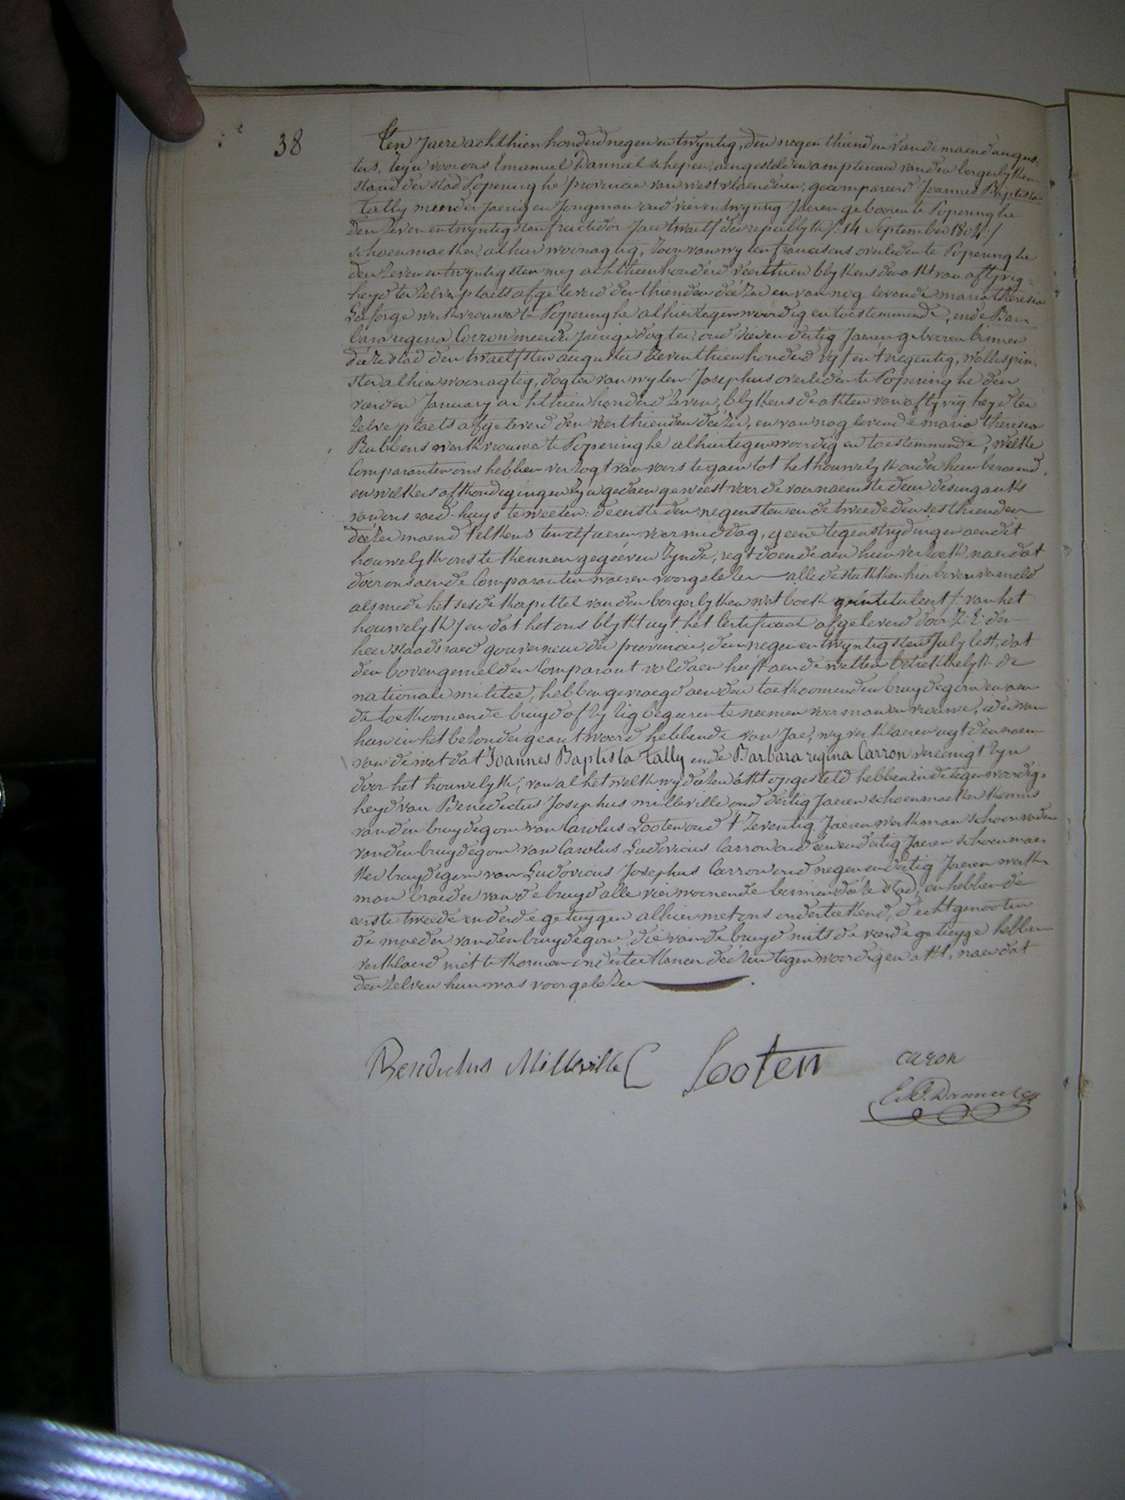 38
Ten Jaere achthien honderd negen en twyntig, den negenthienden van de maend augus-
tus, zyn voor ons Emanuel Danneel schepen, aengestelden amptenaer van den borgerlyken
stand der stad Poperinghe provincie van westvlaenderen, gecompareerd Joannes Baptista
Tally meerder jaerig en Jongman oud vier en twyntig Jaeren geboren te Poperinghe
den zeven en twyntigsten fructidor Jaer twaelf der republyk /: 14 September 1804 :/
schoenmaeker alhier woonagtig, zoon van wylen franciscus overleden te Poperinghe
den zeven en twyntigsten mey achthien honderd veerthien blykens de akt van aflyvig-
heyd ter zelve plaets afgeleverd den thienden dezer en van nog levende maria theresia
Laforge werkvrouwe te Poperinghe alhier tegenwoordig en toestemmende, ende Bar-
bara regina Carron meerder Jaerige dogter, oud vier en dertig Jaeren geboren binnen
deze stad den twaelfsten augustus zeventhien honderd vyf en tnegentig, wollespin-
ster alhier woonagtig, dogter van wylen Josephus overleden te Poperinghe den
January achthien honderd zeven, blykens de akten van aflyvigheyd ter
zelve plaets afgeleverd den veerthienden dezer, en van nog levende maria theresia
Rubbens werkvrouwe te Poperinghe alhier tegenwoordig en toestemmende, welke
Comparanten ons hebben verzogt van voorts te gaen tot het houwelyk onder hun beraemd,
en welkers afkondigingen zyn gedaen geweest voor de voornaemste deur des ingankx
van ons raed-huys te weeten: de eerste den negensten en de tweede den sesthienden
dezer maend telkens ten elf ueren voor middag, geene tegenstrydingen aen dit
houwelyk ons te kennen gegeven zynde, regt doende aen hun verzoek, naer dat
door ons aen de Comparanten waeren voorgelezen alle de stukken hier boven vermeld
als mede het sesde kapittel van den borgerlyken wetboek geintituleert /: van het
houwelyk :/ en dat het ons blykt uyt het Certificaet afgeleverd door Z: E: den
heer staadsraed gouverneur der provincie, den negen en twyntigsten July lest, dat
den bovengemelden Comparant voldaen heeft aen de wetten betrekkelyk de
nationale militie, hebben gevraegd aen den toekoomenden bruydegom en aen
de toekoomende bruyd of zy zig begeeren te neemen voor man en vrouwe, ider van
hun in het bezonder geantwoord hebbende van Jae, wy verklaeren uyt den naem
van de wet dat Joannes Baptista Tally ende Barbara regina Carron vereenigt zyn
door het houwelyk, van al het welk wy dezen akt opgesteld hebben in de tegenwoordig-
heyd van Benedictus Josephus milleville oud dertig Jaeren schoenmaeker kennis
van den bruydegom van Carolus Looten oud tzeventig Jaeren werkman schoonvader
van den bruydegom van Carolus Ludovicus Carron oud een en dertig Jaeren schoenmae-
ker bruydegom van Ludovicus Josephus Carron oud negen en dertig Jaeren werk-
man broeder van de bruyd alle vier woonende binnen deze stad, en hebben de
eerste tweede en derde getuygen alhier met ons onderteekend, d'echtgenooten
de moeder van den bruydegom, die van de bruyd mits de vierde getuyge hebben
verklaerd niet te konnen onderteekenen dezen tegenwoordigen akt, naer dat
den zelven hun was voorgelezen.
Benedictus Milleville
Looten
caron
E. C. Danneel